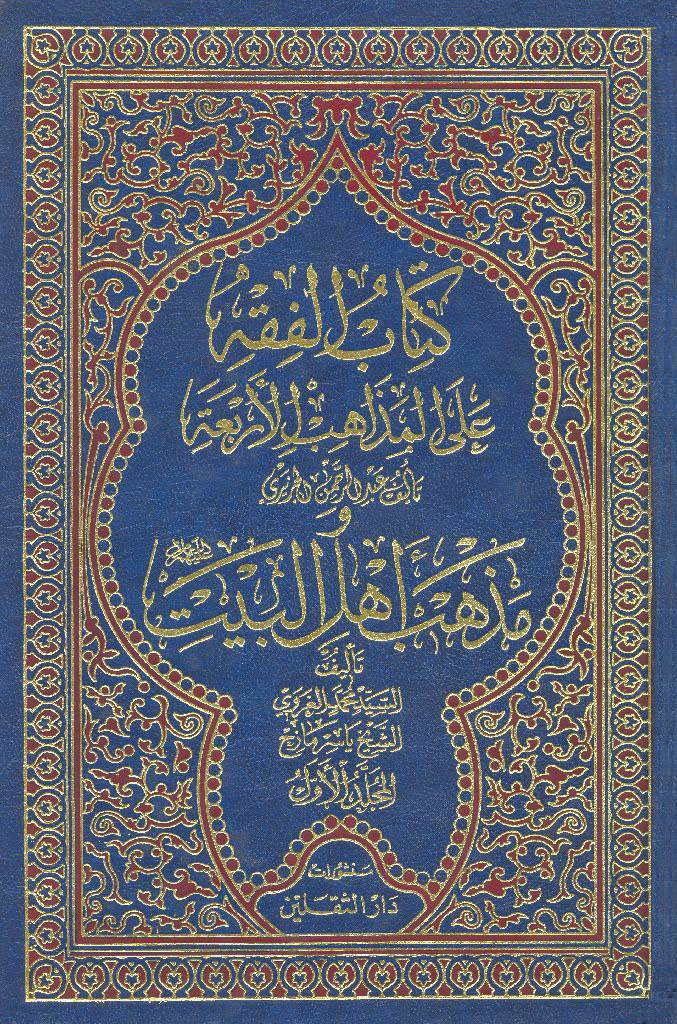 كِتَابُ الفِقْهِ
عَلَى المَذَاهِبِ الأَرْبَعَةِ
تأليف عبد الرحمن الجزيري
و
مَذْهَبِ أَهْلِ البَيْتِ
تَأليفُ
السَّيِّد مُحَمَّد الغَرَوِي
الشَّيْخ يَاسِر مَازِح
المُجَلَّدُ الأَوَّلُ
منشورات
دار الثقلين